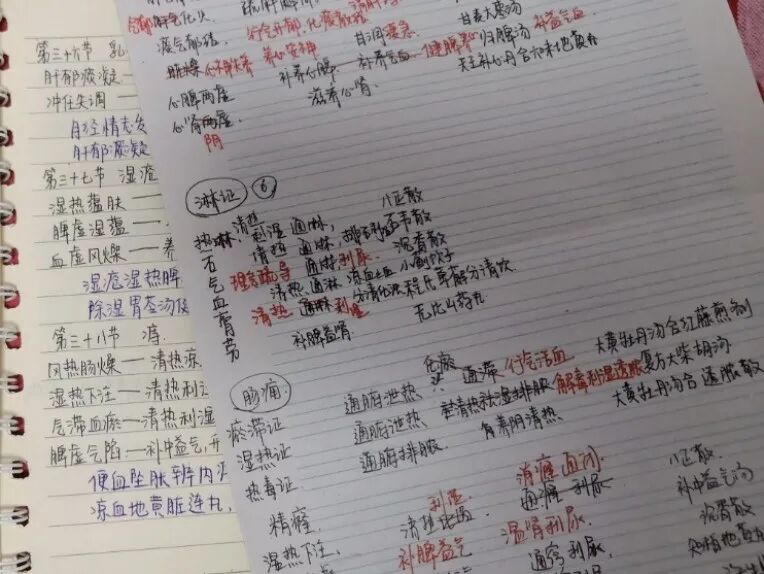 第三十六节 乳
肝郁痰凝——
冲任失调——
月经情志发
肝郁痰凝
第三十七节 湿疮
湿热蕴肤——
脾虚湿蕴——
血虚风燥——养
湿疮湿热脾
除湿胃苓汤
第三十八节 痔
风热肠燥——清热凉
湿热下注——清热利
气滞血瘀——清热利湿
脾虚气陷——补中益气,升
便血坠肛
凉血地黄脏连丸,
痰气郁结, 行气开郁,化痰散结
养心安神 甘润缓急 甘麦大枣汤
心脾两虚 补养心脾 补养气血 健脾养心 归脾汤 补益气血
心肾两虚, 滋养心肾 天王补心丹合六味地黄丸
阴
淋证 6
热淋, 清热利湿通淋, 八正散
石 清热 通淋, 排石利尿 石韦散
气 理气疏导 通淋利尿 沉香散
血 清热通淋 凉血止血 小蓟饮子
膏 清热 通淋利湿 分清泄浊 程氏萆薢分清饮
劳 补脾益肾 无比山药丸
肠痈
瘀滞证 通腑泄热, 通滞 行气活血 大黄牡丹汤合红藤煎剂
湿热证 通腑泄热 解毒利湿透脓 复方大柴胡汤
热毒证 通腑排脓 养阴清热 大黄牡丹汤合透脓散
精癃 消癃通闭
湿热下注, 利湿 通癃利尿 八正散
补脾益气 温肾利尿 补中益气汤
通窍利尿 沉香散
知柏地黄